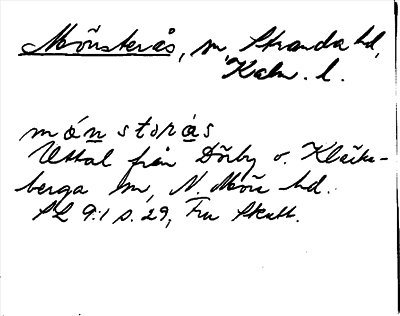 Mönsterås, sn, Stranda hd,
Kalm. l.
mónstorå̀s
Uttal från Dörby o. Kläcke-
berga sn, N. Möre hd.
SL 9:1 s. 29, Fru Skatt.